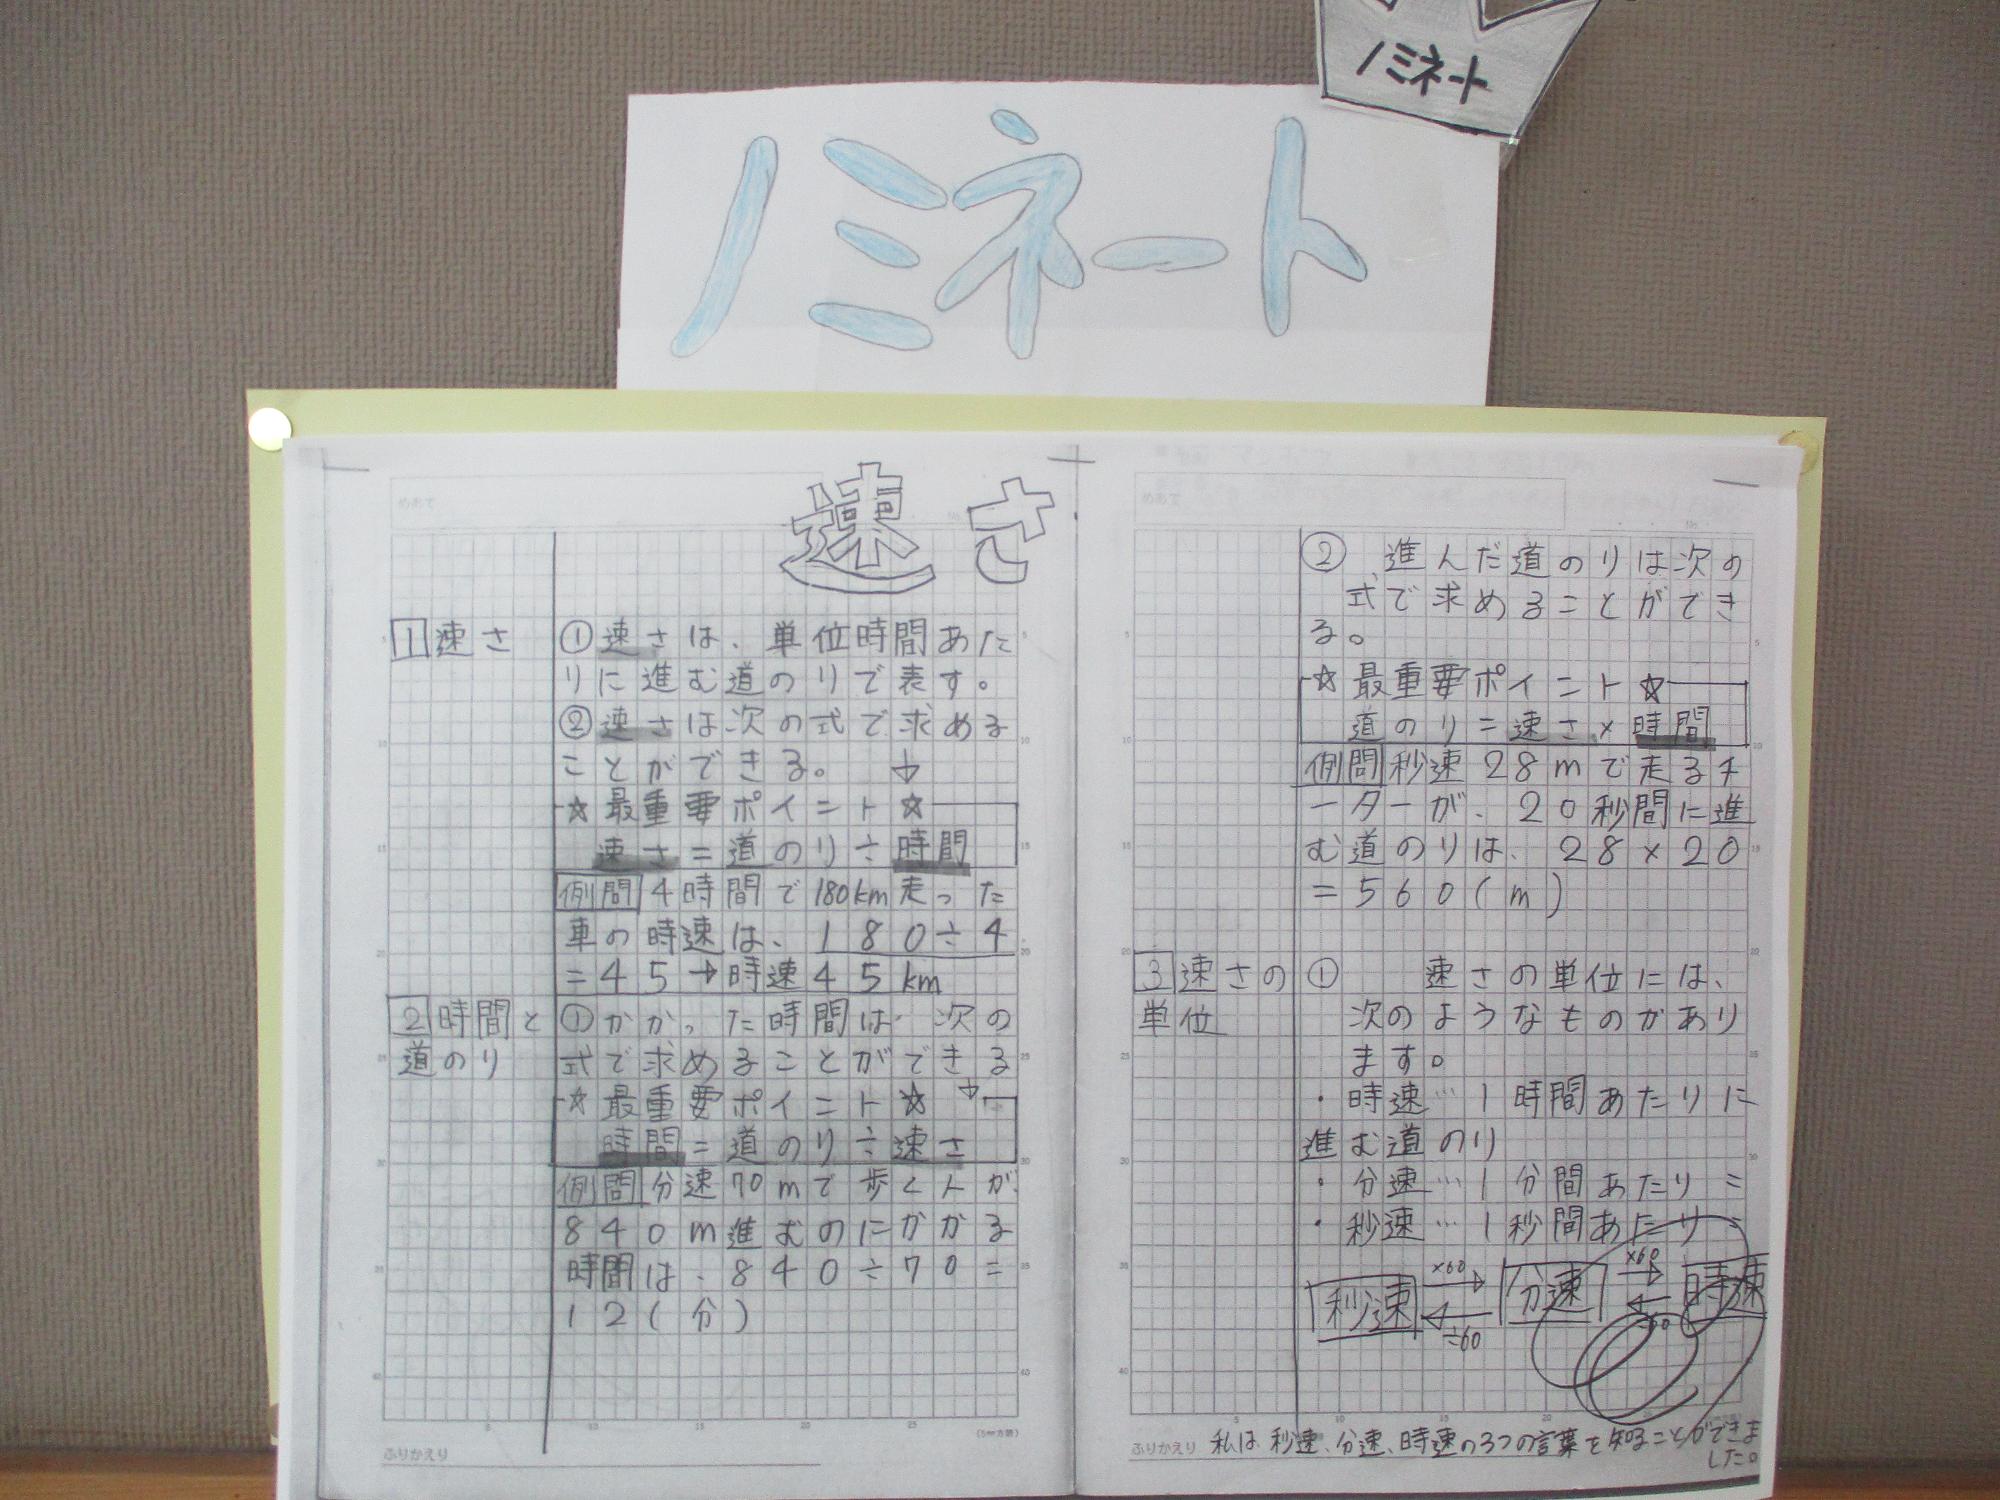 ノミネート
ノミネート
めあて
速さ
1 速さ
①速さは、単位時間あた
りに進む道のりで表す。
②速さは次の式で求める
ことができる。↓
☆最重要ポイント☆
速さ=道のり÷時間
例問 4時間で180km走った
車の時速は、180÷4
=45→時速45km
2 時間と
道のり
①かかった時間は、次の
式で求めることができる
☆最重要ポイント☆ ↓
時間=道のり÷速さ
例問 分速70mで歩く人が、
840m進むのにかかる
時間は、840÷70=
12(分)
ふりかえり
めあて
② 進んだ道のりは次の
式で求めることができ
る。
☆最重要ポイント☆
道のり=速さ×時間
例問 秒速28mで走るチ
ーターが、20秒間に進
む道のりは、28×20
=560(m)
3 速さの
単位
① 速さの単位には、
次のようなものがあり
ます。
・時速…1時間あたりに
進む道のり
・分速…1分間あたり〃
・秒速…1秒間あたり〃
×60 ×60
秒速 分速 時速
÷60 ÷60
ふりかえり 私は秒速、分速、時速の3つの言葉を知ることができま
した。